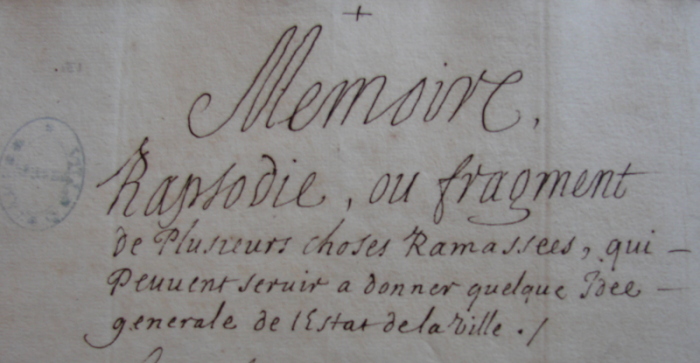 +
Memoire,
Rapsodie, ou fragment
de Plusieurs choses Ramassées, qui –
Peuuent seruir a donner quelque Idée –
generale de lEstat de la Ville ./